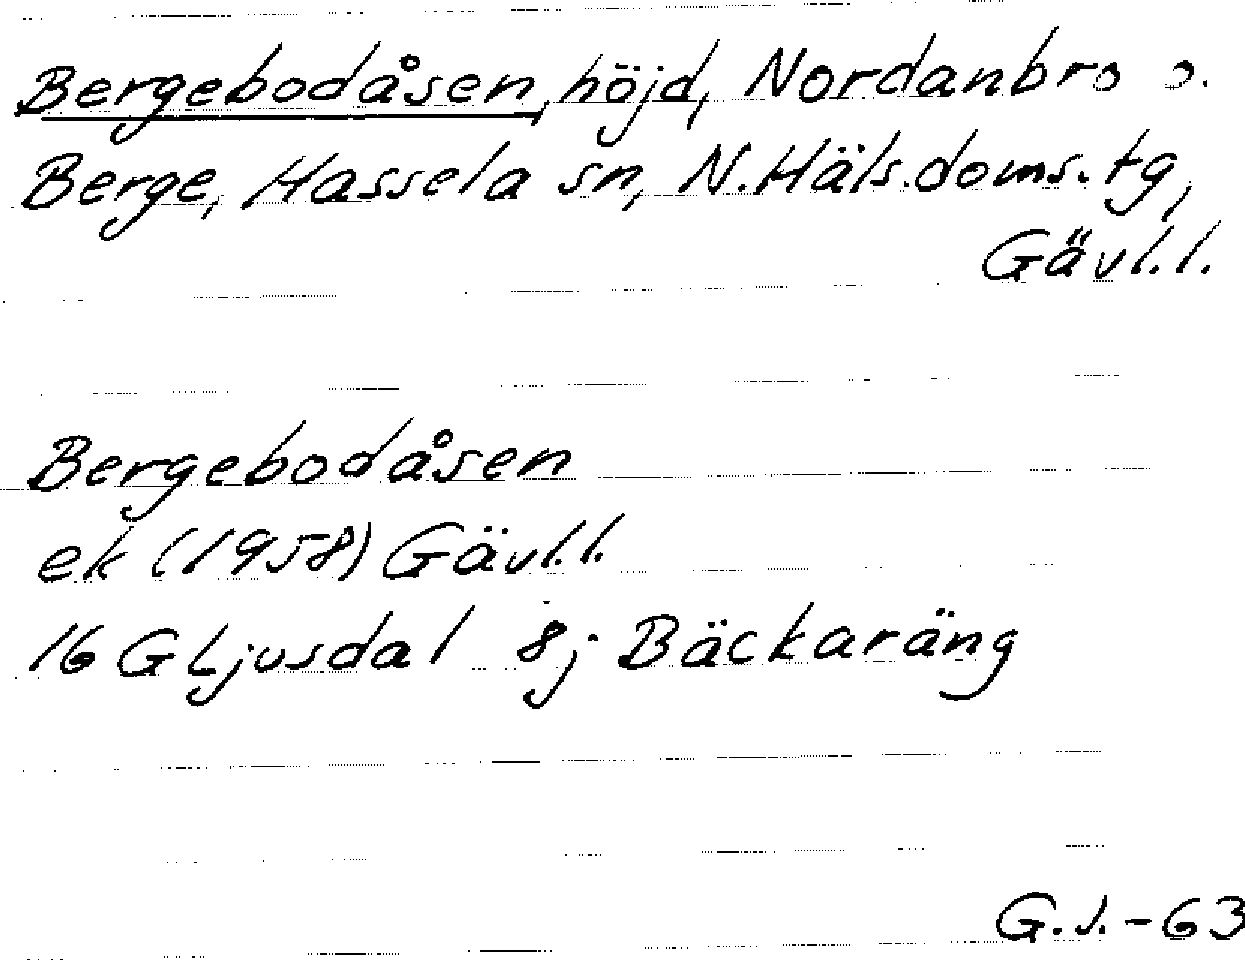 Bergebodåsen, höjd, Nordanbro o.
Berge, Hassela sn, N.Häls.doms.tg,
Gävl.l.
Bergebodåsen
ek (1958) Gävl.l.
16 G Ljusdal 8j Bäckaräng
G.J.-63